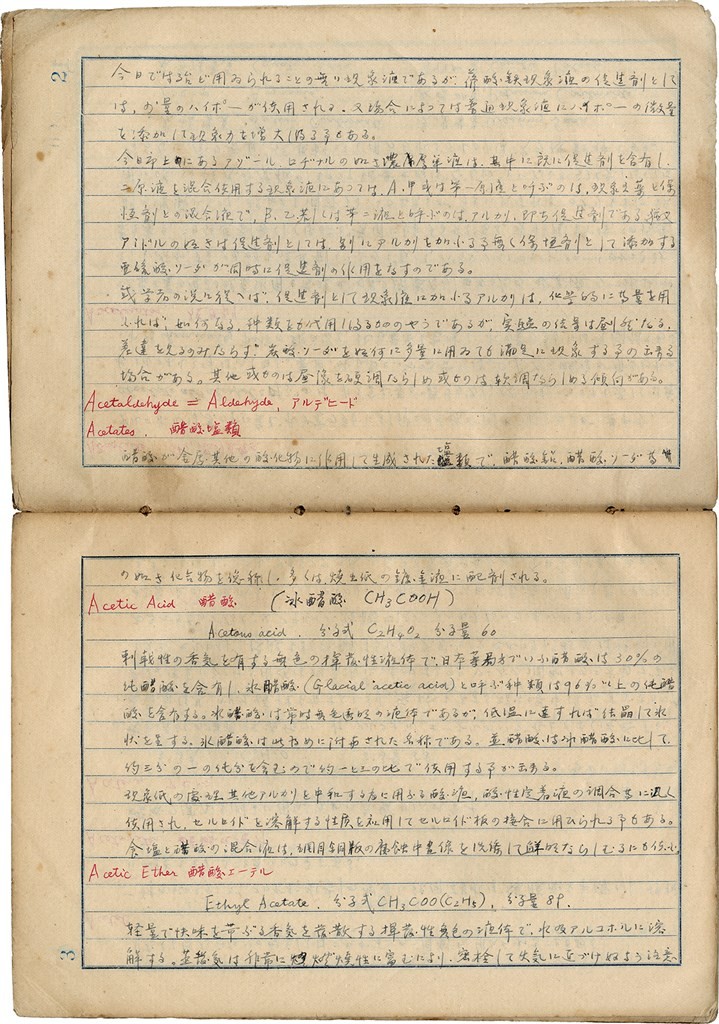 2
今日では殆ど用ゐられることの無い現象液であるが、蓚酸鉄現象液の促進剤として
は、少量のハイポーが使用される。又場合によっては普通現象液にハイポーの微量
を添加して現象力を増大し得る事もある。
今日市上にあるアゾール、ロヂナルの如き濃厚単液は、其中に既に促進剤を含有し、
二原液を混合使用する現象液にあつては、A、甲或は第一原液と呼ぶのは、現象主薬と保
恒剤との混合液で、B、乙若しくは第二液と呼ぶのはアルカリ、即ち促進剤である。
アミドルの如きは促進剤としては、別にアルカリを加ふる事無く保恒剤として添加する
亜硫酸ソーダが同時に促進剤の作用をなすのである。
或学者の説に従へば、促進剤として現象液に加ふるアルカリは、化学的に当量を用
ふれば、如何なる種類をも代用し得るもののやうであるが、実際の結果は劃然たる
差違を見るのみならず、炭酸ソーダを如何に多量に用ゐても満足に現象する事の出来る
場合がある。其他或ものは画像を硬調ならしめ或ものは軟調ならしめる傾向がある。
Acetaldehyde = Aldehyde, アルデヒード
Acetates. 醋酸塩類
醋酸が金属其他の酸化物に作用して生成された塩類で、醋酸鉛、醋酸ソーダ等
の如き化合物を総称し、多くは焼出紙の鍍金液に配剤される。
Acetic Acid 醋酸 (氷醋酸 CH3COOH)
Acetous acid. 分子式 C2H4O2 分子量 60
刺戟性の香気を有する無色の揮発性液体で、日本薬局方でいふ醋酸は30%の
純醋酸を含有し、氷醋酸(Glacial acetic acid)と呼ぶ種類は96%以上の純醋
酸を含有する。氷醋酸は常時無色透明の液体であるが、低温に達すれば結晶して氷
状を呈する。氷醋酸は此ために附せされた名称である。並醋酸は氷醋酸に比して、
約三分の一の純分を含むので約一と三の比で使用する事が出来る。
現象紙の処理其他アルカリを中和する為に用ふる酸液、酸性定着液の調合等に汎く
使用され、セルロイドを溶解する性質を利用してセルロイド板の接合に用ひられる事もある。
食塩と醋酸の混合液は、網目銅版の腐蝕中画線を洗滌して鮮明ならしむるにも
Acetic Ether 醋酸エーテル
Ethyl Acetate. 分子式 CH3COO(C2H5), 分子量 89.
軽量で快味を帯ぶる香気を発散する揮発性無色の液体で、水及アルコホルに溶
解する。蒸発気は非常に燃焼性に富むにより、密栓して火気に近づけぬよう注意
3